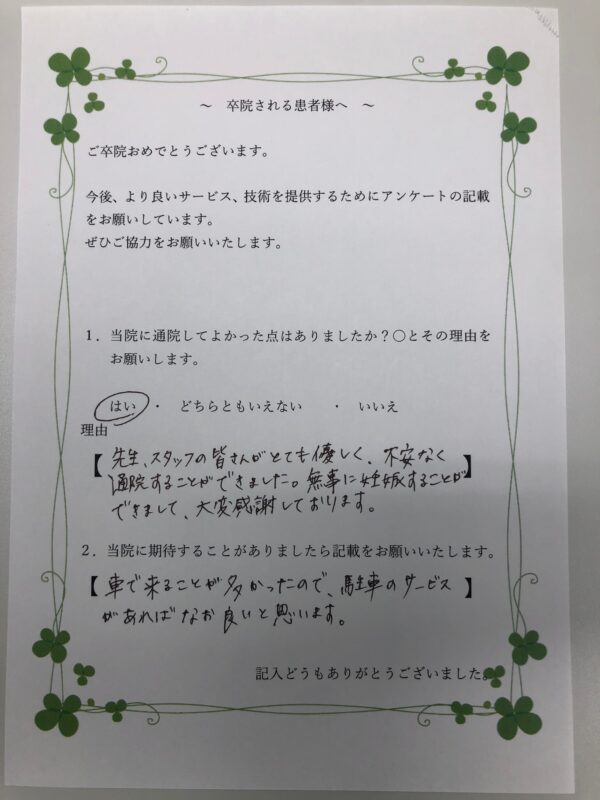 ～ 卒院される患者様へ ～
ご卒院おめでとうございます。
今後、より良いサービス、技術を提供するためにアンケートの記載
をお願いしています。
ぜひご協力をお願いいたします。
1．当院に通院してよかった点はありましたか？○とその理由を
お願いします。
はい ・ どちらともいえない ・ いいえ
理由
【先生、スタッフの皆さんがとても優しく、不安なく
通院することができました。無事に妊娠することが】
できまして、大変感謝しております。
2．当院に期待することがありましたら記載をお願いいたします。
【車で来ることが多かったので、駐車のサービス】
があればなお良いと思います。
記入どうもありがとうございました。